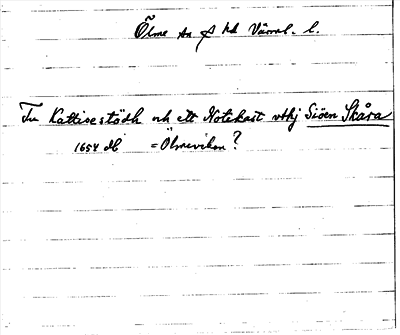 Ölme sn hd Värml. l.
Tu Kattisestödh och ett Notekast vthj Siöen Skåra
1654 db = Ölmeviken?